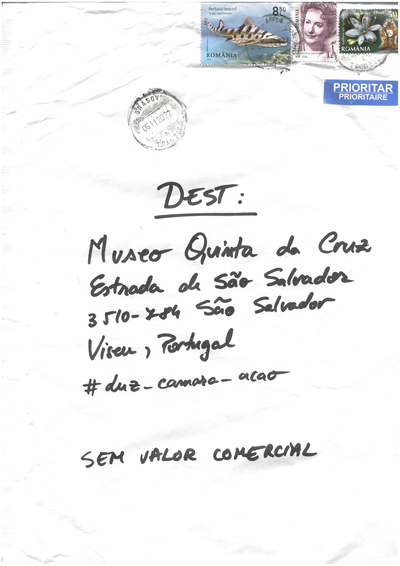 8,50
ROMÂNIA
ROMÂNIA
PRIORITAR
PRIORITAIRE
BRASOV
05112022
DEST:
Museo Quinta da Cruz
Estrada de São Salvador
3510-784 São Salvador
Viseu, Portugal
#duz-camara-acao
SEM VALOR COMERCIAL